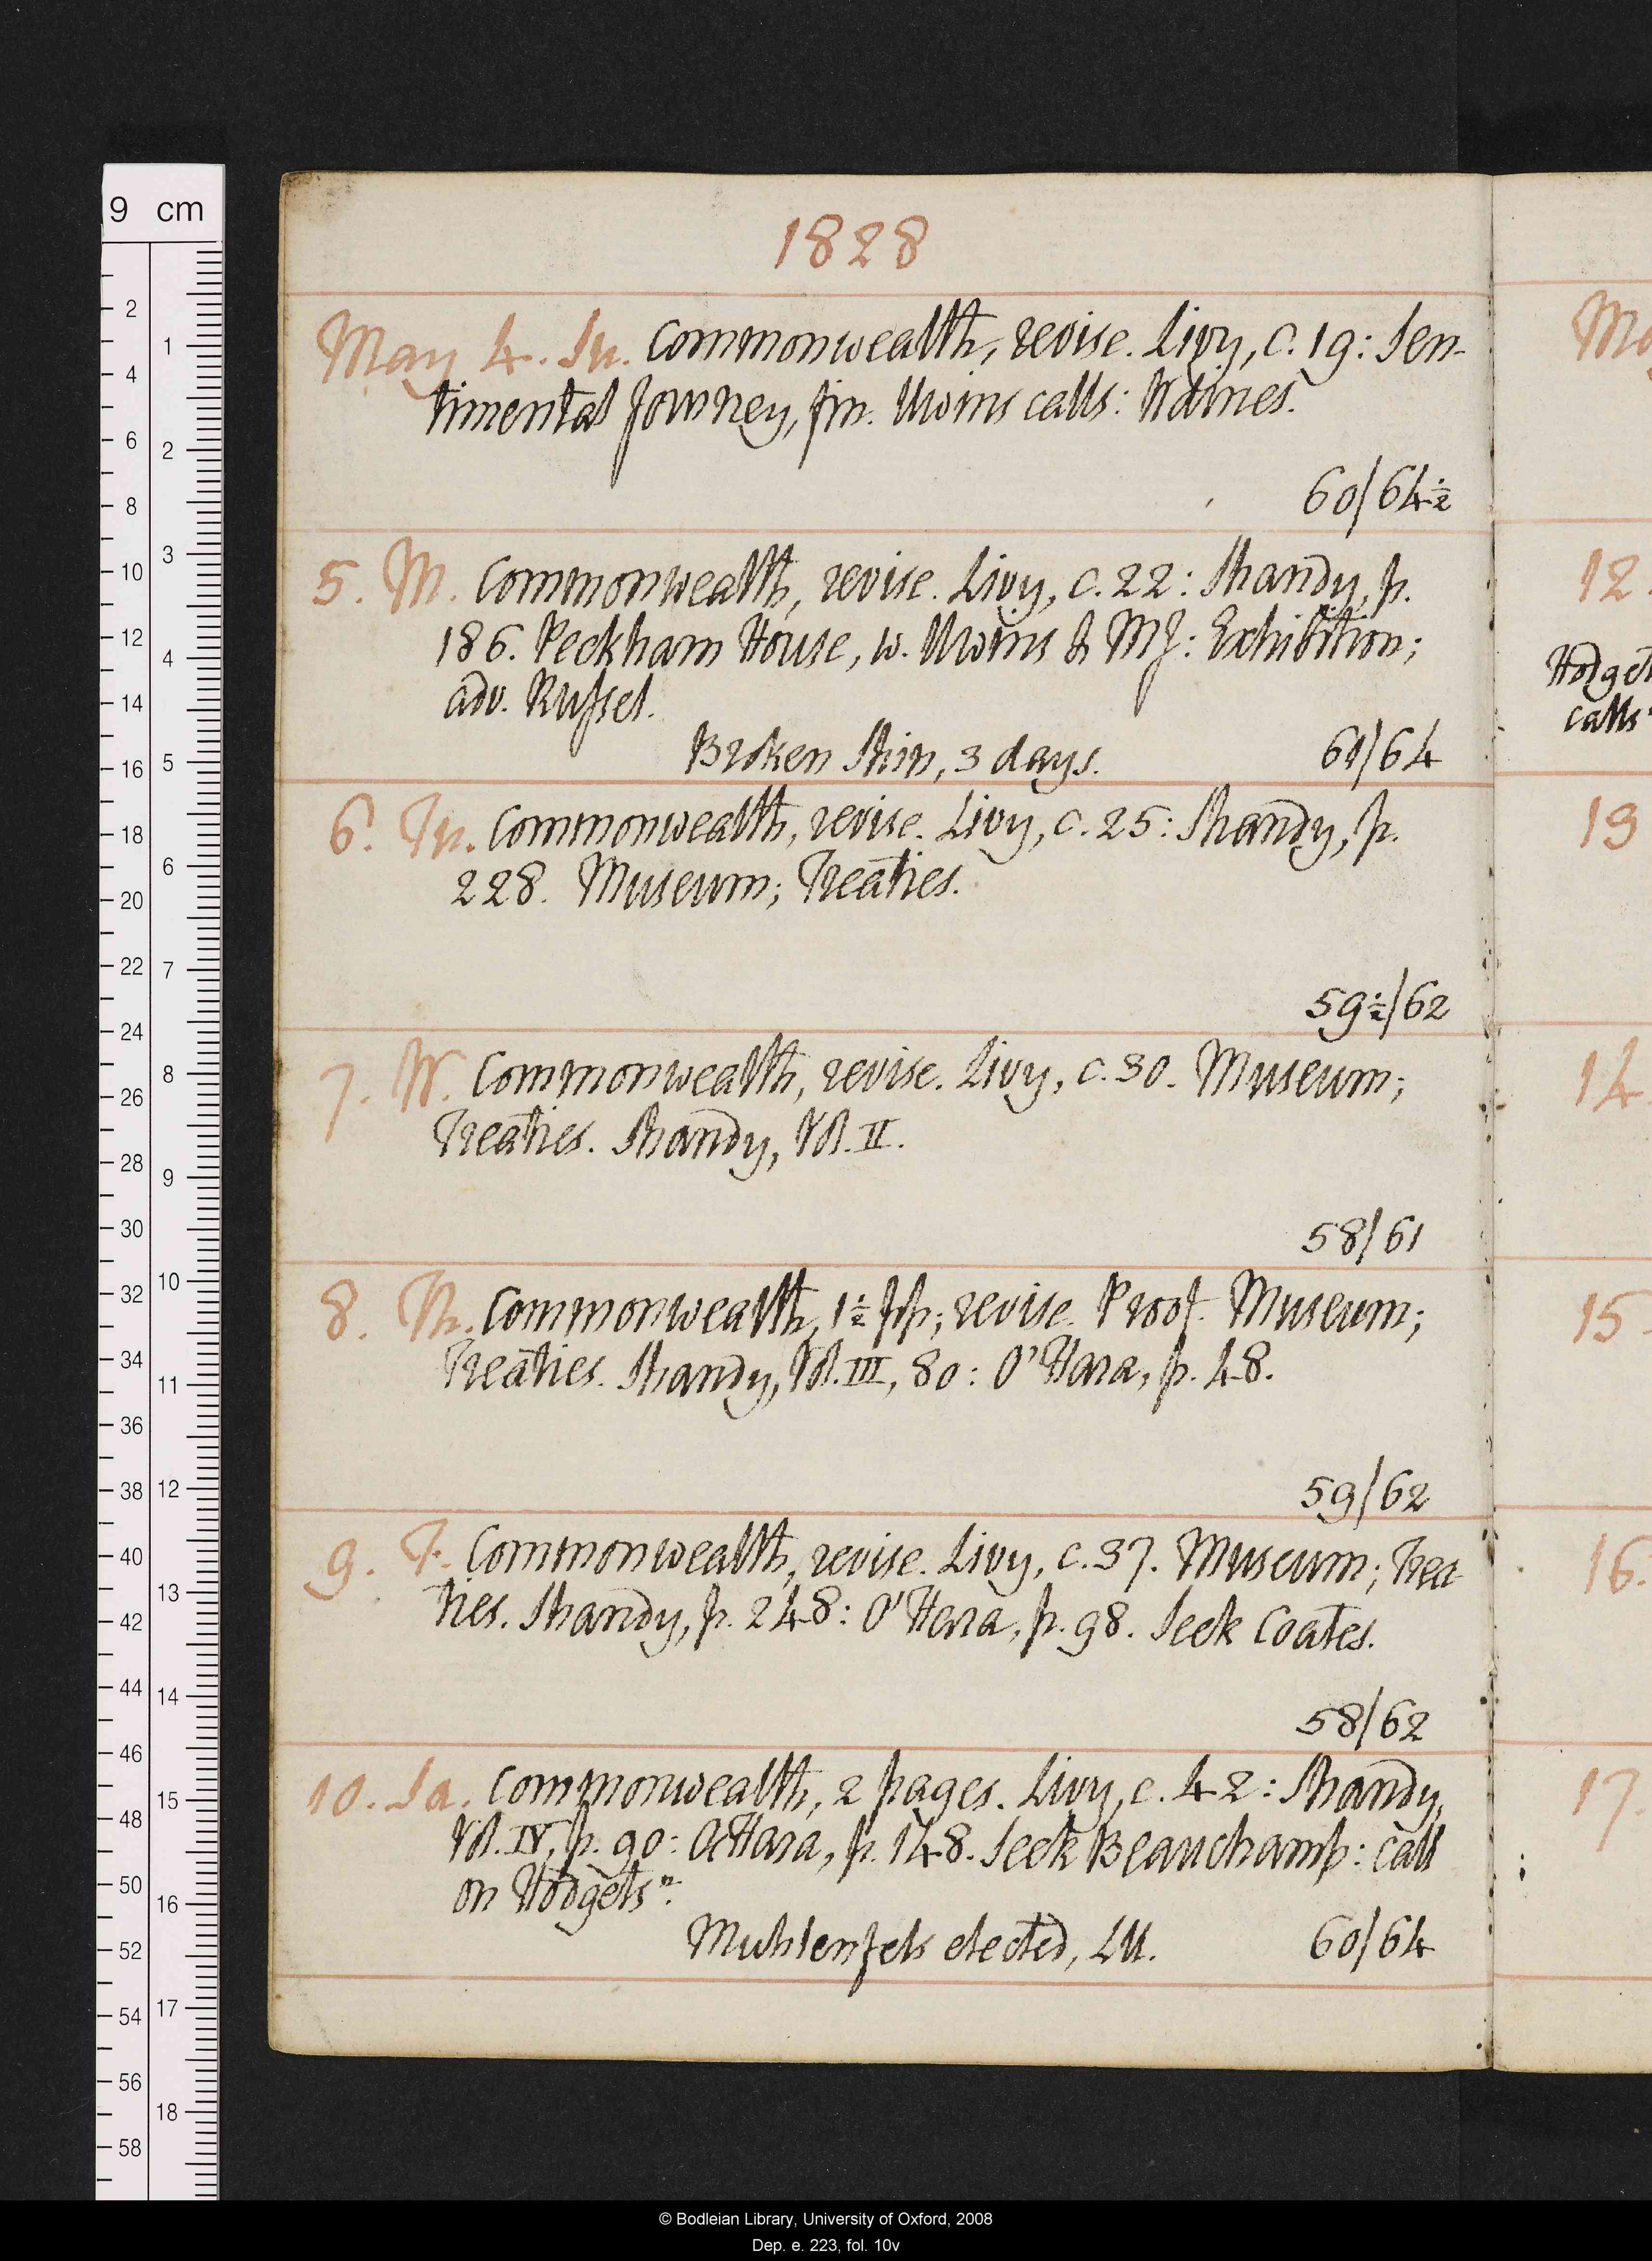 1828
May 4. Su. Commonwealth, revise. Livy, c. 19: Sen-
timental Journey, fin. Uwins calls: N dines.
60/64½
5. M. Commonwealth, revise. Livy, c. 22: Shandy, p.
186. Peckham House, w. Uwins & MJ: Exhibition;
adv. Russel.
Broken Shin, 3 days.
61/64
6. Tu. Commonwealth, revise. Livy, c. 25: Shandy, p.
228. Museum; Treaties.
59½/62
7. W. Commonwealth, revise. Livy, c. 30. Museum;
Treaties. Shandy, Vol. II.
58/61
8. Th. Commonwealth, 1½ pp; revise. Proof. Museum;
Treaties. Shandy, Vol. III, 80: O'Hara, p. 48.
59/62
9. F. Commonwealth, revise. Livy, c. 37. Museum; Trea
ties. Shandy, p. 248: O'Hara, p. 98. Seek Coates.
58/62
10. Sa. Commonwealth, 2 pages. Livy, c. 42: Shandy,
Vol. IV, p. 90: O'Hara, p. 148. Seek Beauchamp: call
on Hodgets n.
Muhlenfels elected, LU.
60/64
Hodget
calls
12.
13
14
15
16.
17.
9 cm
© Bodleian Library, University of Oxford, 2008
Dep. e. 223, fol. 10v